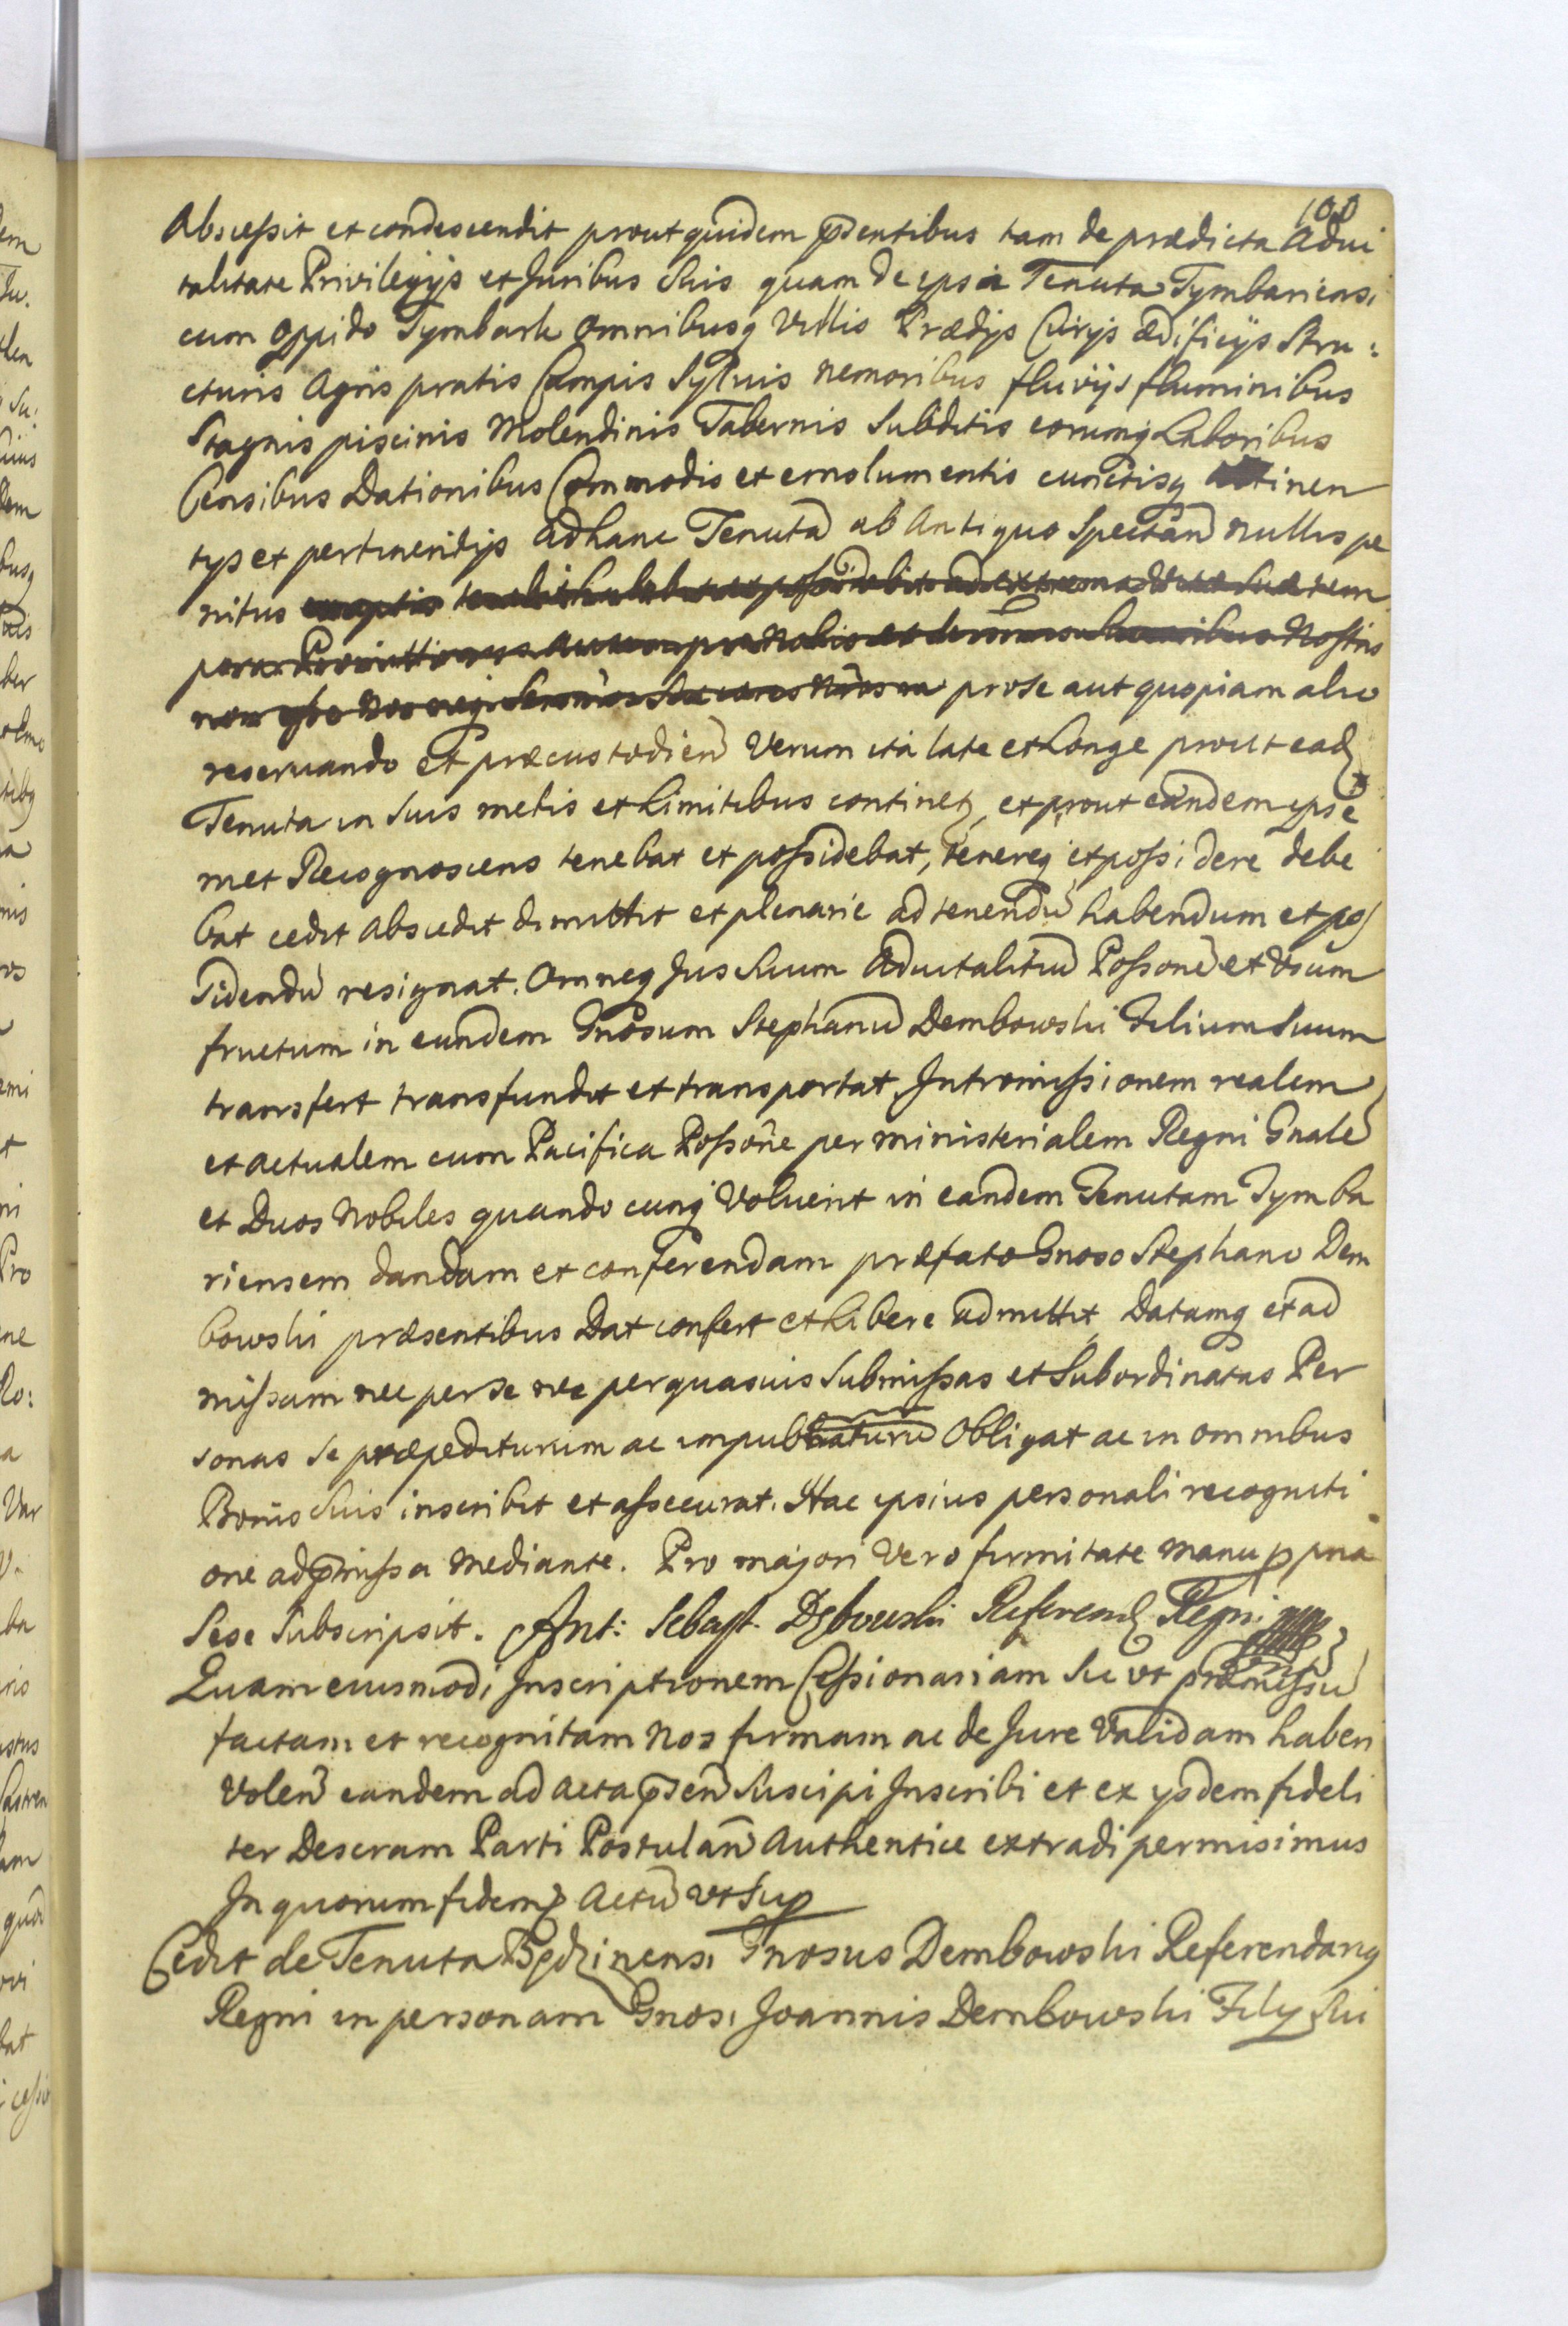 100
Abscessit et condescendit prout quidem p̄sentibus tam de prædicta Advi
talitate Privilegijs et Juribus Suis quam de ipsa Tenuta Tymbariensi
cum oppido Tymbark omnibusq Villis Prædijs Curijs ædificijs Stru:
cturis Agris pratis Campis Sylvis nemoribus fluvijs fluminibus
Stagnis piscinis Molendinis Tabernis Subditis eorumq Laboribus
Censibus Dationibus Commodis et emolumentis cunctisq attinen
tijs et pertinentijs ad hanc Tenutā ab Antiquo Spectan̄ nullis pe
nitus exceptis tenebit habebit et possidebit ad extrema vitæ suæ tem
pora Promittimus autem pro Nobis et Serenmis Successoribus Nostris
non esse Nos neq Serenmos Successores Nr̄os pro se aut quopiam alio
reservando et præcustodien̄ Verum ita late et Longe prout ead
Tenuta in suis metis et Limitibus continet, et prout eandem ipse
met Recognoscens tenebat et possidebat, tenereq et possidere debe
bat cedit abscedit dimittit et plenarie ad tenendū habendum et pos
sidendū resignat. Omneq Jus suum Advitalitiū Possonē et Usum
fructum in eundem Gnosum Stephanū Dembowski Filium Suum
transfert transfundit et transportat, Intromissionem realem
et actualem cum Pacifica Possone per ministerialem Regni Gnalē
et Duos Nobiles quando cunq Voluerit in eandem Tenutam Tymba
riensem dandam et conferendam præfato Gnoso Stephano Dem
bowski præsentibus Dat confert et Libere admittit, Datamq et ad
missam nec per se nec per quasvis Submissas et Subordinatas Per
sonas se præpediturum ac impubnaturū obligat ac in omnibus
Bonis suis inscribit et assecurat. Hac ipsius personali recogniti
one ad p̄missa mediante. Pro majori Vero firmitate manu ppria
Sese Subscripsit. Ant: Sebast. Dębowski Referend Regni
Quam eiusmodi Inscriptionem Cessionariam Sic vt præmissū
factam et recognitam Nos firmam ac de Jure Validam haberi
Volen̄ eandem ad acta p̄sen̄ Suscipi Inscribi et ex ijsdem fideli
ter Descram Parti Postulan̄ Authentice extradi permisimus
In quorum fidem Actū vt Sup
Cedit de Tenuta Będzinensi Gnosus Dembowski Referendarq
Regni in personam Gnosi Joannis Dembowski Filij sui